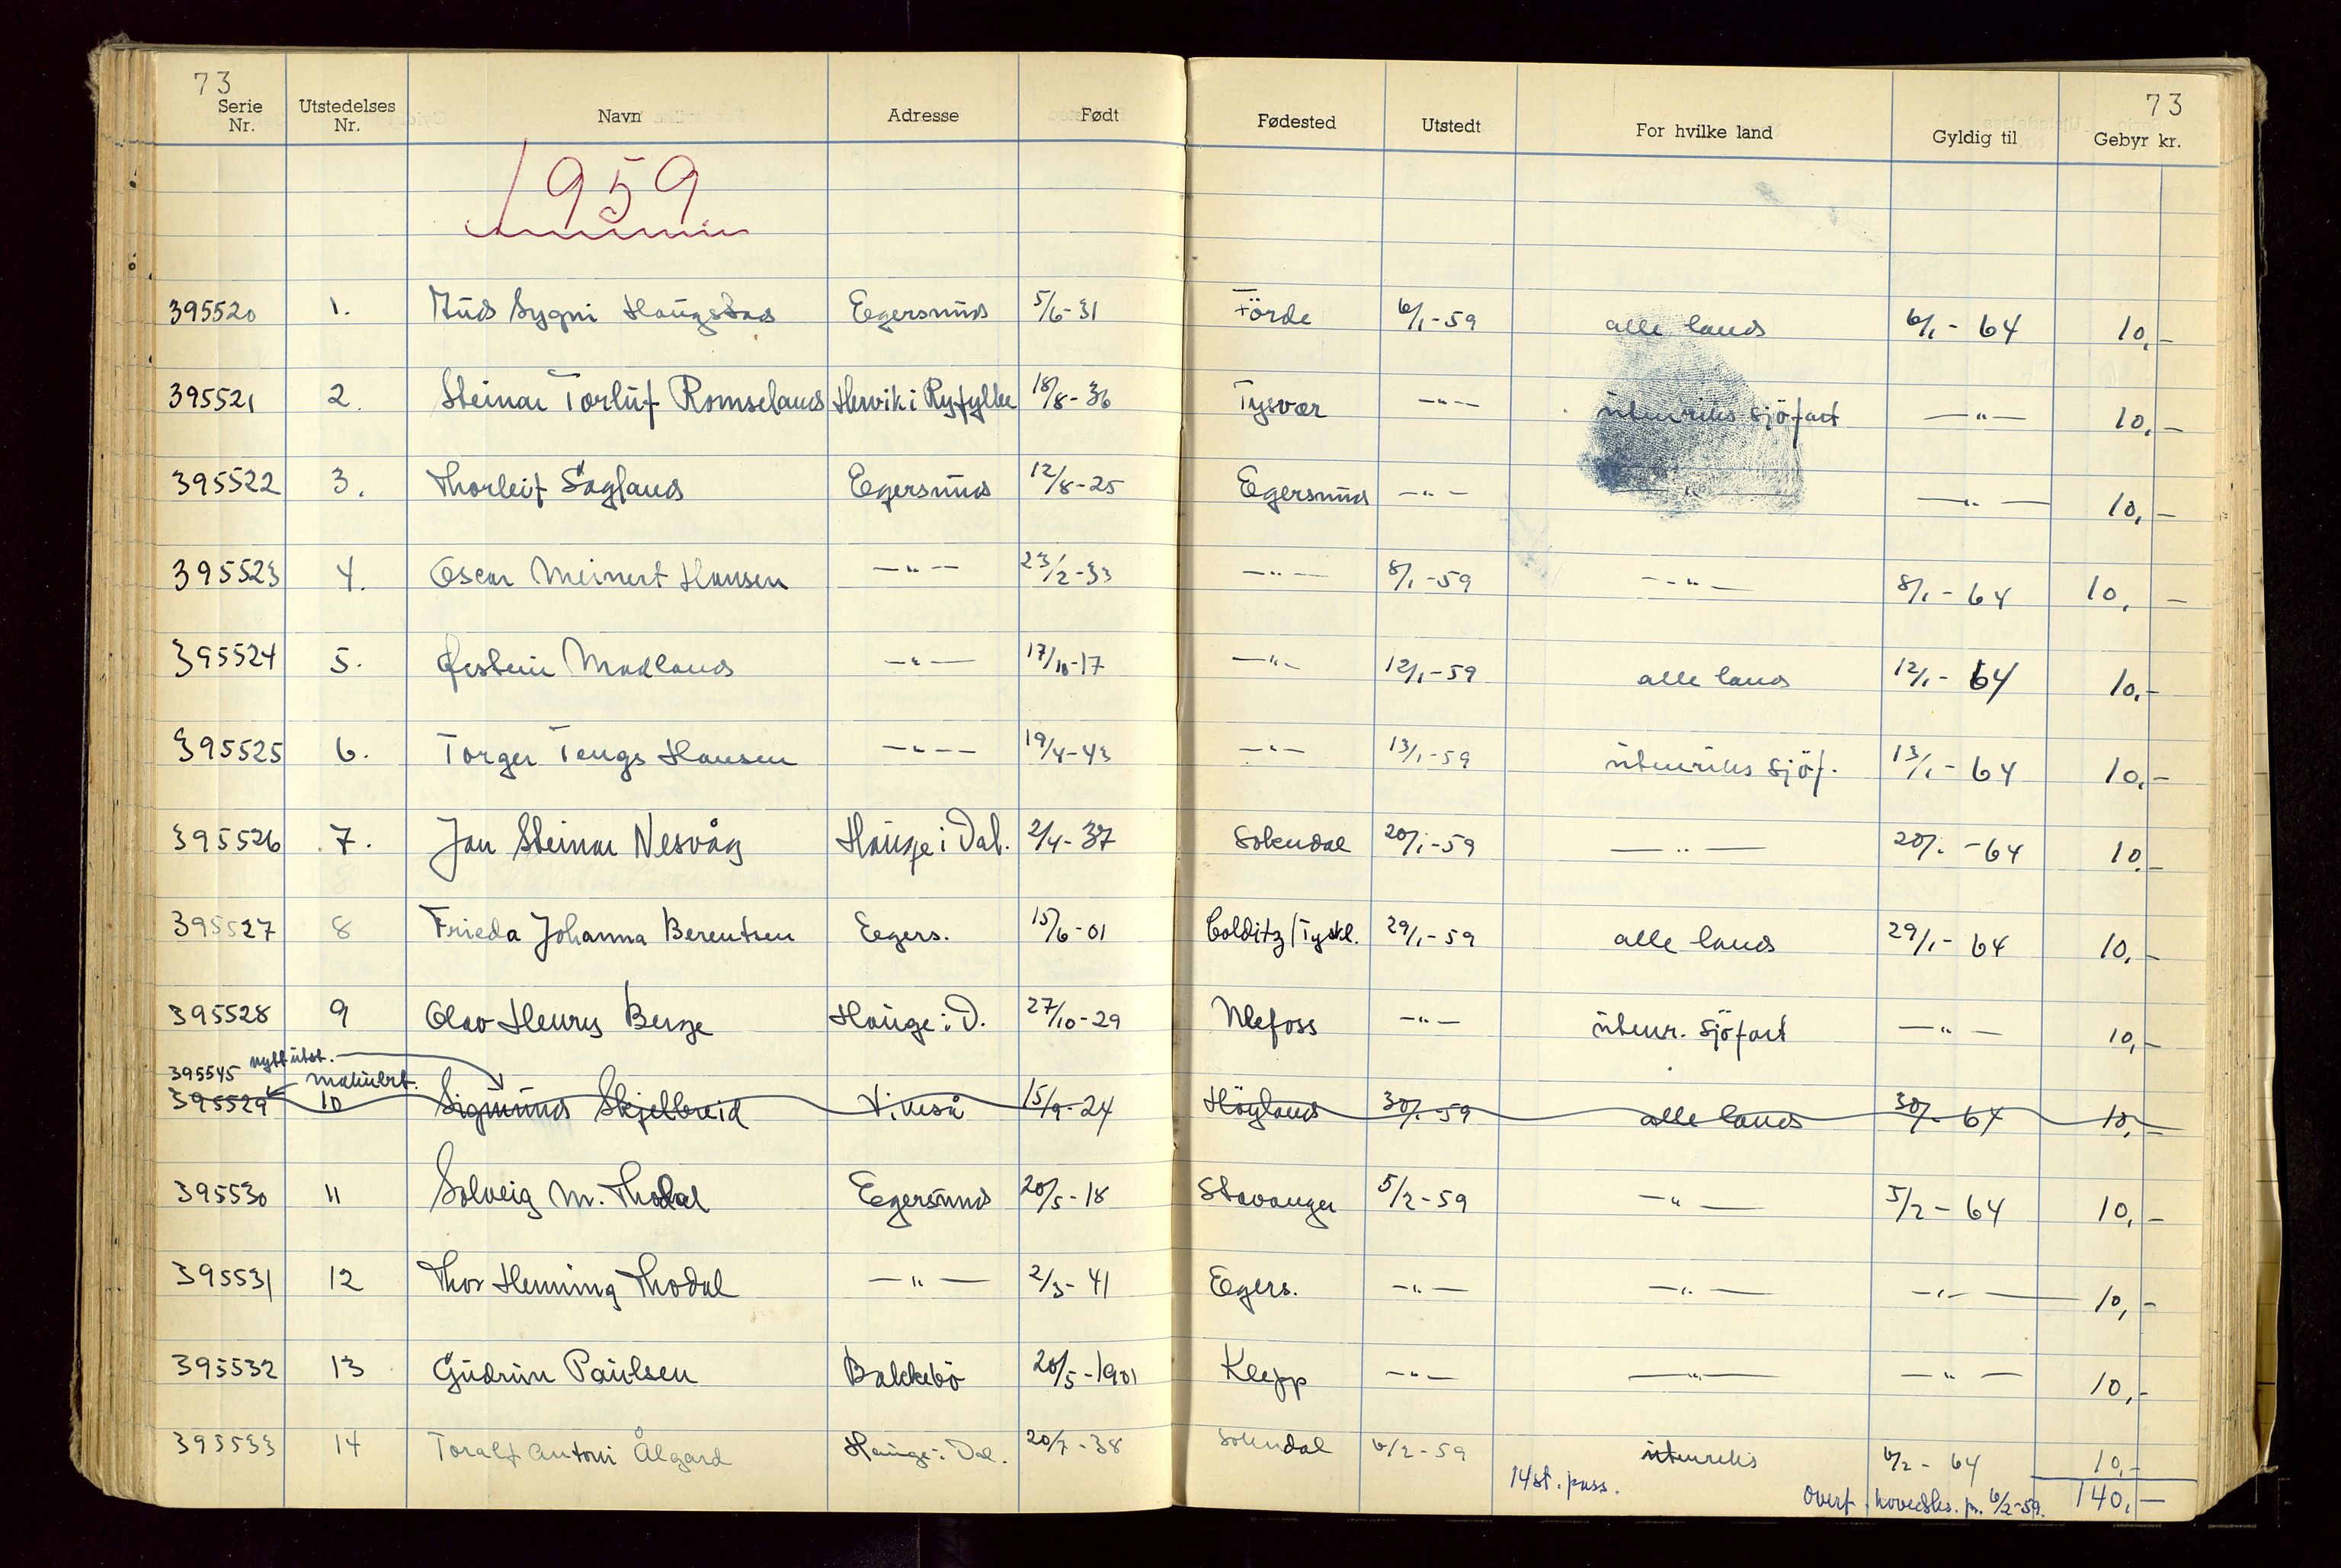 73 73
Serie Nr. Utstedelses Nr. Navn Adresse Født Fødested Utstedt For hvilke land Gyldig til Gebyr kr.
1959
395520 1. Sygni Haugstad Egersund 5/6-31 Förde 6/1-59 alle land 6/1-64 10,-
395521 2. Steinar Torluf Romseland Hervik i Ryfylke 18/8-36 Tysvær -"- utenriks sjöfart -"- 10,-
395522 3. Thorleif Sagland Egersund 12/8-25 Egersund -"- -"- -"- 10,-
395523 4. Oscar Meinert Hansen -"- 23/2-33 -"- 8/1-59 -"- 8/1-64 10,-
395524 5. Øistein Madland -"- 17/10-17 -"- 12/1-59 alle land 12/1-64 10,-
395525 6. Torger Tengs Hansen -"- 19/4-43 -"- 13/1-59 utenriks sjöf. 13/1-64 10,-
395526 7. Jan Steinar Nesvåg Hauge i Dal. 2/4-37 Sokndal 20/1-59 -"- 20/1-64 10,-
395527 8 Frieda Johanna Berentsen Egers. 15/6-01 Colditz/Tyskl. 29/1-59 alle land 29/1-64 10,-
395528 9 Olav Henry Berge Hauge i D. 27/10-29 Ulefoss -"- utenr. sjöfart -"- 10,-
395545 nytt utst. makulert.
395529 10 Sigmund Skjelbreid Vikeså 15/9-24 Høyland 30/1-59 alle land 30/1-64 10,-
395530 11 Solveig M. Thodal Egersund 20/5-18 Stavanger 5/2-59 -"- 5/2-64 10,-
395531 12 Thor Henning Thodal -"- 2/3-41 Egers. -"- -"- -"- 10,-
395532 13 Gudrun Paulsen Bakkebö 20/5-1901 Klepp -"- -"- -"- 10,-
395533 14 Toralf Antoni Ålgard Hauge i Dal. 20/7-38 Sokndal 6/2-59 utenriks 6/2-64 10,-
14 st. pass. Overf. hovedks. pr. 6/2-59. 140,-